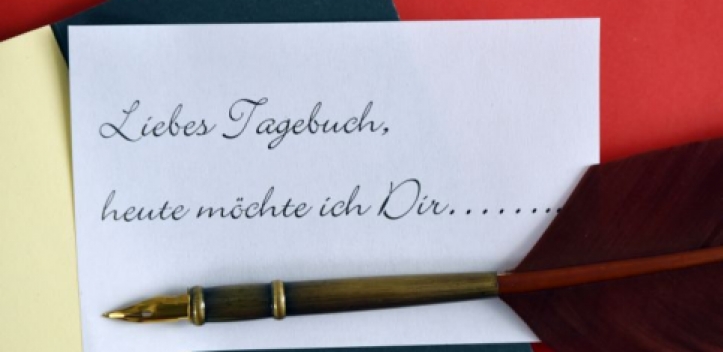 Liebes Tagebuch,
heute möchte ich Dir........